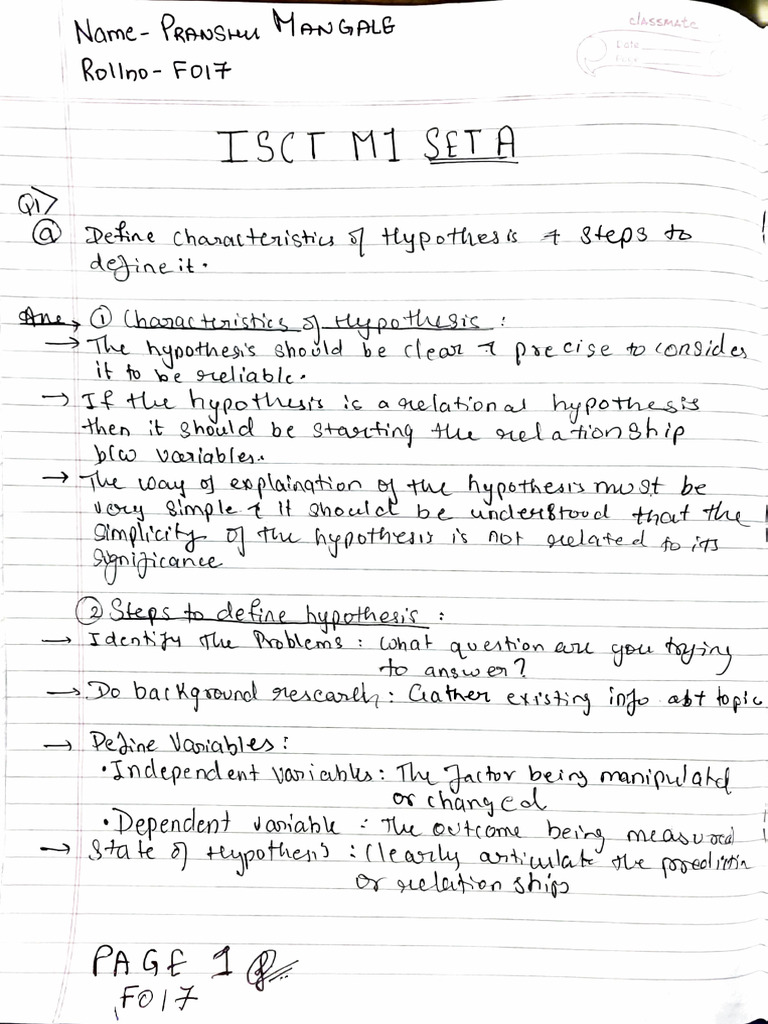 Name- PRANSHU MANGALE
classmate
Date
Page
Rollno- F017
ISCT M1 SET A
Q1>
(a) Define characteristics of Hypothesis & steps to
define it.
Ans → ① Characteristics of Hypothesis :
→ The hypothesis should be clear & precise to consider
it to be reliable.
→ If the hypothesis is a relational hypothesis
then it should be starting the relationship
b/w variables.
→ The way of explaination of the hypothesis must be
very simple & it should be understood that the
simplicity of the hypothesis is not related to its
significance
② Steps to define hypothesis :
→ Identify The Problems : What question are you trying
to answer?
→ Do background research : Gather existing info abt topic
→ Define Variables :
• Independent variables : The factor being manipulated
or changed
• Dependent variable : The outcome being measured
→ State of Hypothesis : Clearly articulate the prediction
or relation ship
PAGE 1
F017